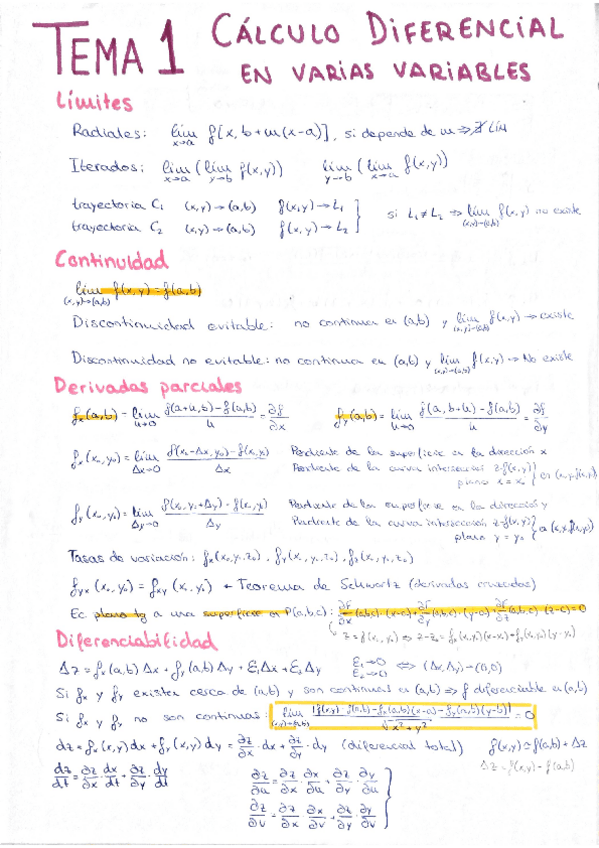 TEMA 1 CÁLCULO DIFERENCIAL
EN VARIAS VARIABLES
Límites
Radiales: lim x→a f[x, b+m(x-a)], si depende de m ⇒ ∄ Lím
Iterados: lim x→a (lim y→b f(x,y)) lim y→b (lim x→a f(x,y))
trayectoria C₁ (x,y)→(a,b) f(x,y)→L₁
trayectoria C₂ (x,y)→(a,b) f(x,y)→L₂ } si L₁≠L₂ ⇒ lim (x,y)→(a,b) f(x,y) no existe
Continuidad
lim (x,y)→(a,b) f(x,y) = f(a,b)
Discontinuidad evitable: no continua en (a,b) y lim (x,y)→(a,b) f(x,y) → existe
Discontinuidad no evitable: no continua en (a,b) y lim (x,y)→(a,b) f(x,y) → No existe
Derivadas parciales
fx(a,b) = lim u→0 f(a+u,b)-f(a,b)/u = ∂f/∂x fy(a,b) = lim u→0 f(a,b+u)-f(a,b)/u = ∂f/∂y
fx(x₀,y₀) = lim Δx→0 /Δx Pendiente de la superficie en la dirección x
Pendiente de la curva intersección z=f(x,y)
plano
fy(x₀,y₀) = lim Δy→0 /Δy Pendiente de la superficie en la dirección y
Pendiente de la curva intersección z=f(x,y)
plano y=y₀
Tasas de variación: fx(x₀,y₀,z₀), fy(x₀,y₀,z₀), fz(x₀,y₀,z₀)
fyx(x₀,y₀) = fxy(x₀,y₀) ← Teorema de Schwartz (derivadas cruzadas)
Ec plano tg a una superficie en P(a,b,c): ∂f/∂x (a,b,c)·(x-a)+∂f/∂y(a,b,c)·(y-b)+∂f/∂z(a,b,c)(z-c)=0
z=f(x,y) ⇒ z-z₀=fx(x₀,y₀)(x-x₀)+fy(x₀,y₀)(y-y₀)
Diferenciabilidad
Δz=fx(a,b)Δx+fy(a,b)Δy+ε₁Δx+ε₂Δy ε₁→0 ε₂→0 ⇔ (Δx,Δy)→(0,0)
Si fx y fy existen cerca de (a,b) y son continuas en (a,b) ⇒ f diferenciable en (a,b)
Si fx y fy no son continuas: lim (x,y)→(a,b) |f(x,y)-f(a,b)-fx(a,b)(x-a)-fy(a,b)(y-b)|/√x²+y² = 0
dz=fx(x,y)dx+fy(x,y)dy=∂z/∂x·dx+∂z/∂y·dy (diferencial total) f(x,y)≃f(a,b)+Δz
Δz=f(x,y)-f(a,b)
dz/dt=∂z/∂x·dx/dt+∂z/∂y·dy/dt ∂z/∂u=∂z/∂x·∂x/∂u+∂z/∂y·∂y/∂u
∂z/∂v=∂z/∂x·∂x/∂v+∂z/∂y·∂y/∂v }